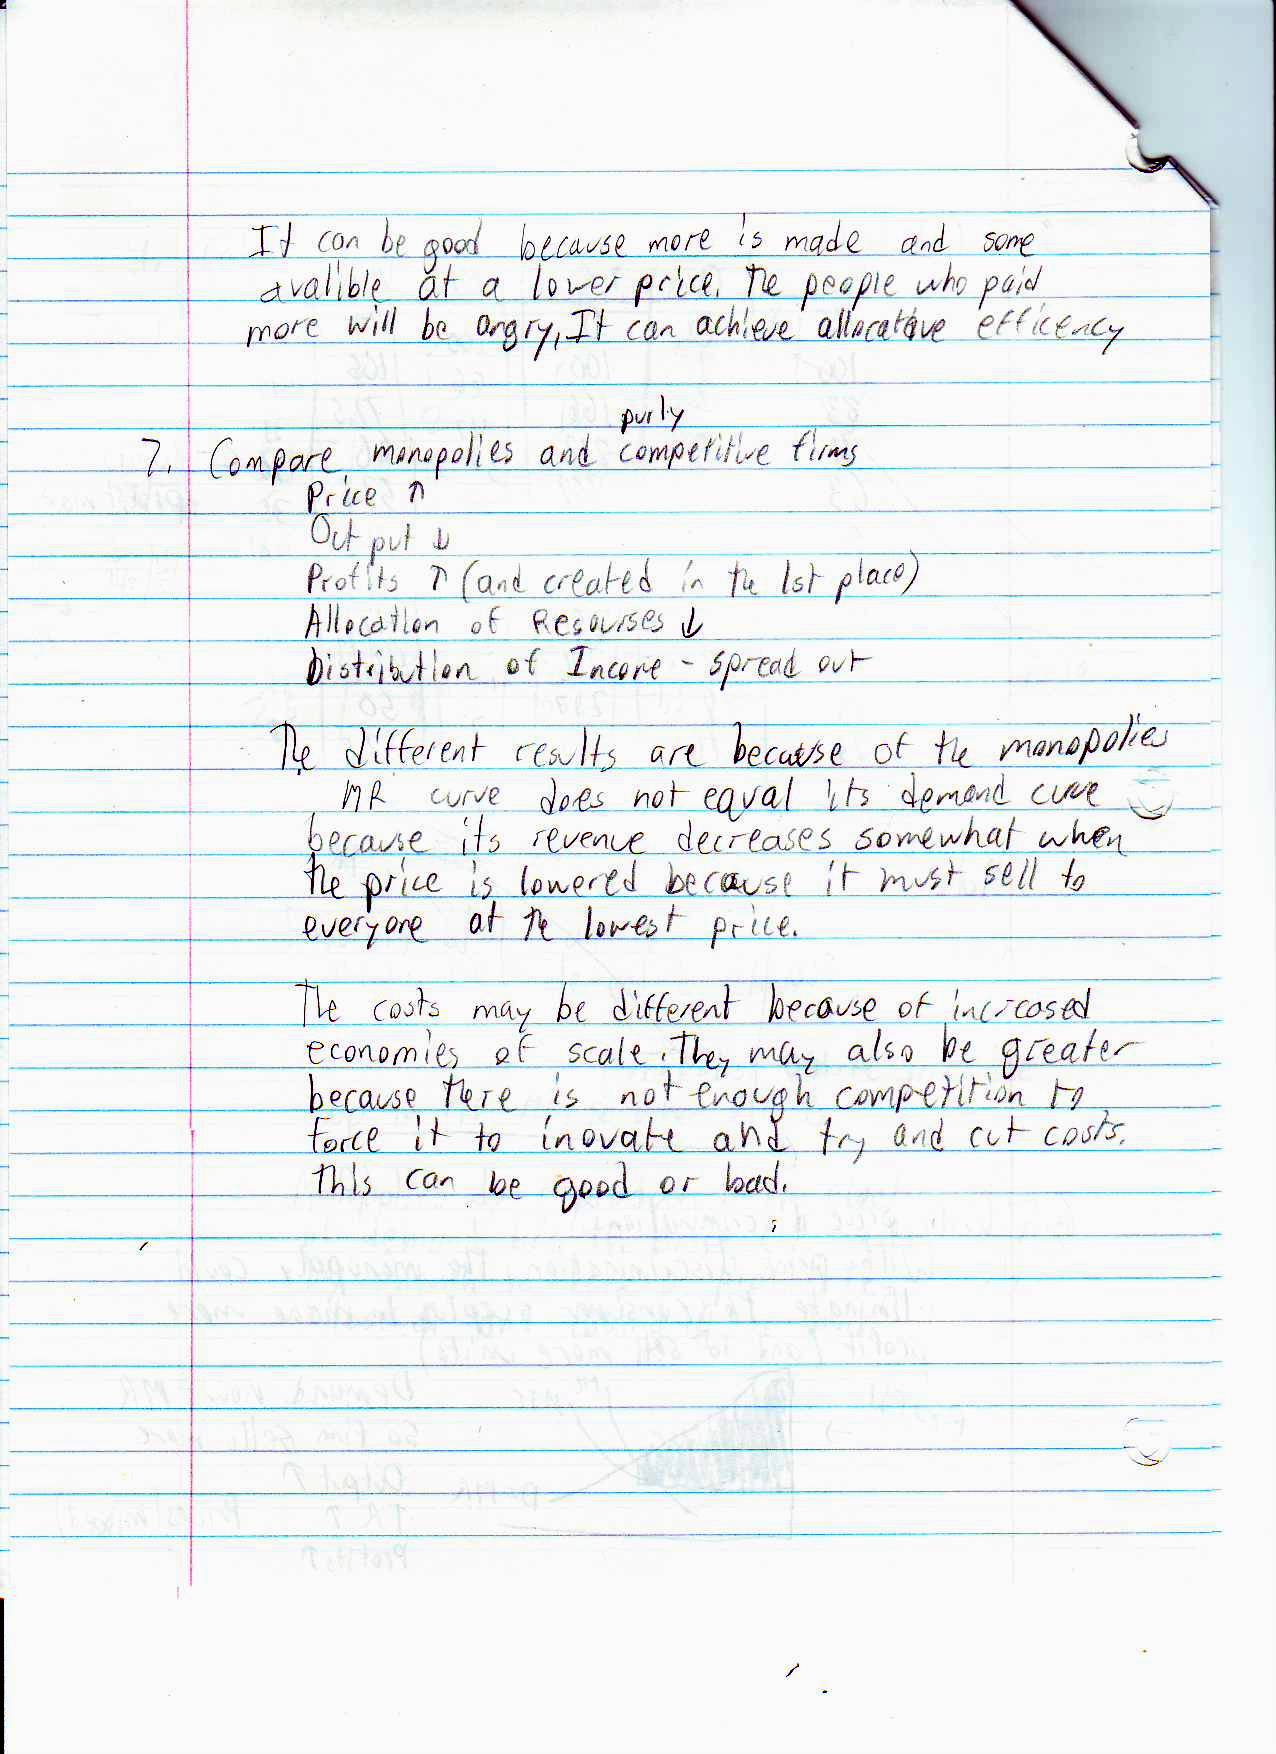 It can be good because more is made and some
avalible at a lower price. The people who paid
more will be angry, It can achieve allocative efficency
purly
7. Compare monopolies and competitive firms
Price ↑
Output ↓
Profits ↑ (and created in the 1st place)
Allocation of Resourses ↓
Distribution of Income - spread out
The different results are because of the monopolies
MR curve does not equal its demand curve
because its revenue decreases somewhat when
the price is lowered because it must sell to
everyone at the lowest price.
The costs may be different because of increased
economies of scale. They may also be greater
because there is not enough competition to
force it to inovate and try and cut costs.
This can be good or bad.